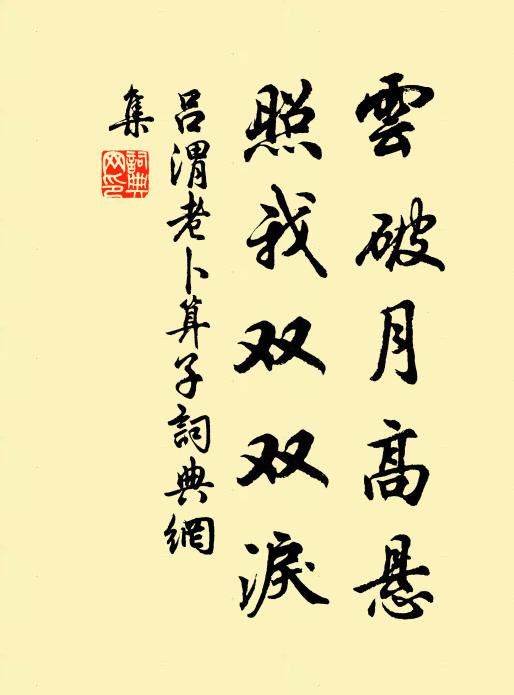 雲破月高悬
照我双双淚
吕渭老卜算子詞典網
集
詞典網印